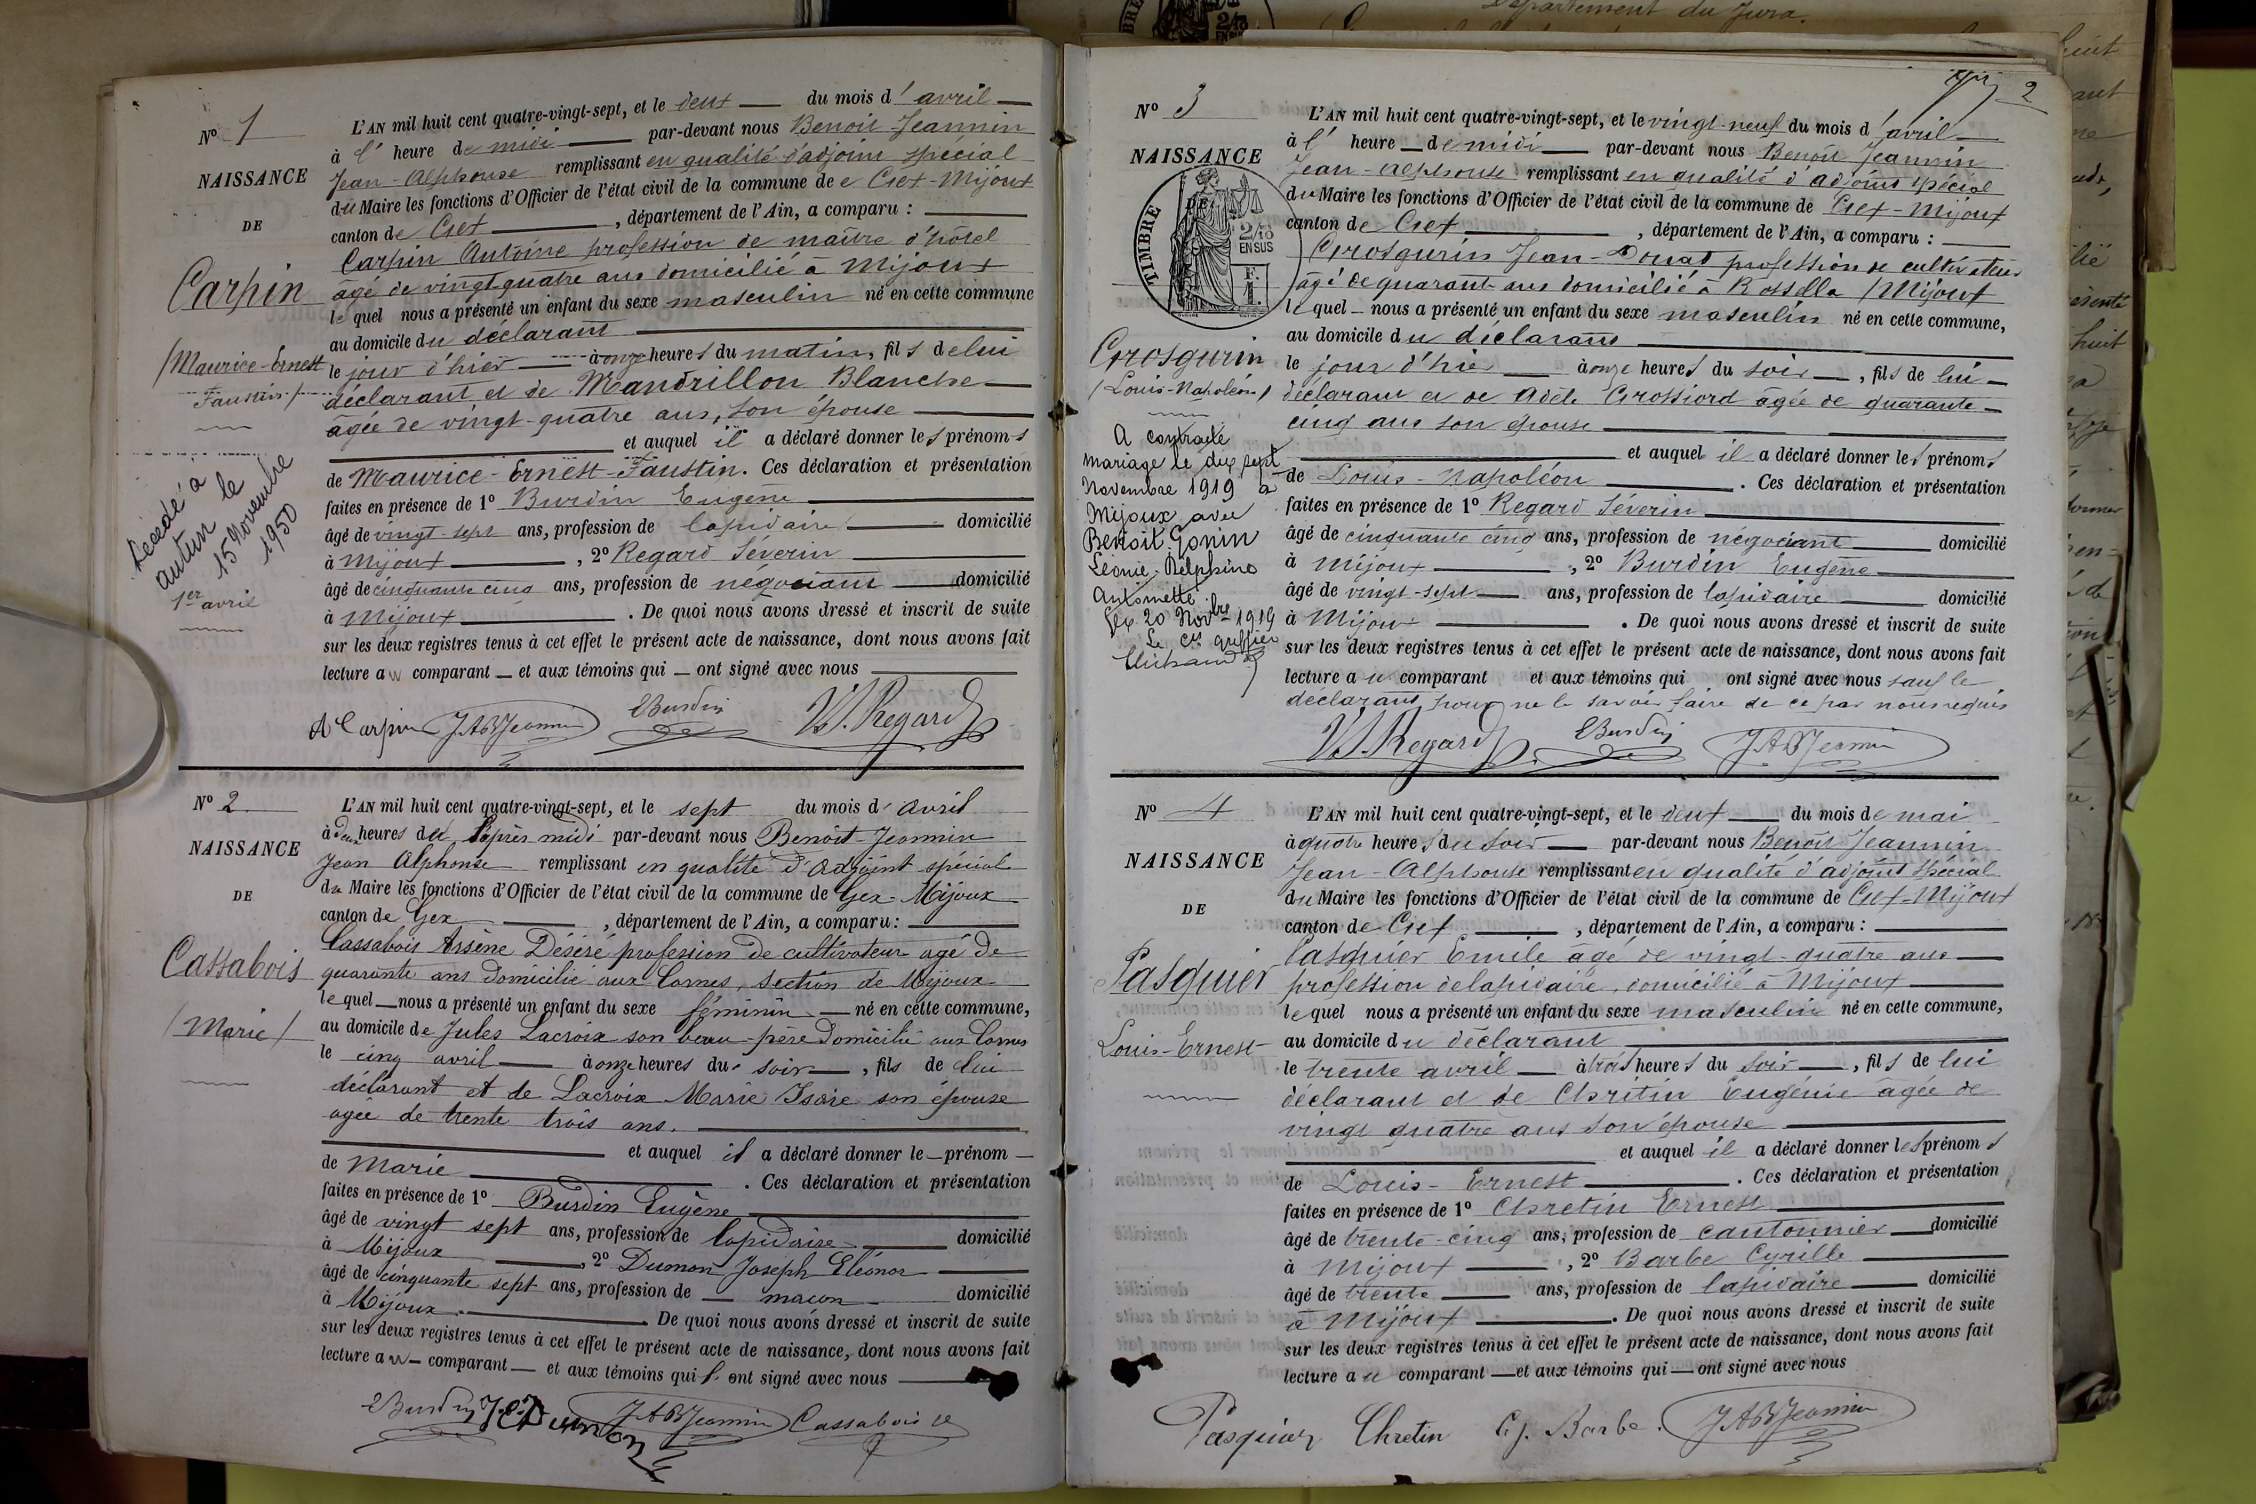 N° 1
NAISSANCE
DE
Carpin
/Maurice-Ernest
Faustin/
Decédé à
autun le
15 Novembre
1950
1er avril
L'AN mil huit cent quatre-vingt-sept, et le deux du mois d'avril
à l'heure de midi par-devant nous Benoit Jeannin
Jean-Alphonse remplissant en qualité d'adjoint spécial
du Maire les fonctions d'Officier de l'état civil de la commune de Gex-Mijoux
canton de Gex, département de l'Ain, a comparu :
Carpin Antoine profession de maître d'hôtel
âgé de vingt-quatre ans domicilié à Mijoux
lequel nous a présenté un enfant du sexe masculin né en cette commune
au domicile du déclarant
le jour d'hier à onze heures du matin, fils de lui
déclarant et de Mandrillon Blanche
âgée de vingt-quatre ans, son épouse
et auquel il a déclaré donner les prénoms
de Maurice-Ernest-Faustin. Ces déclaration et présentation
faites en présence de 1° Burdin Eugène
âgé de vingt-sept ans, profession de lapidaire domicilié
à Mijoux, 2° Regard Séverin
âgé de cinquante cinq ans, profession de négociant domicilié
à Mijoux. De quoi nous avons dressé et inscrit de suite
sur les deux registres tenus à cet effet le présent acte de naissance, dont nous avons fait
lecture au comparant et aux témoins qui ont signé avec nous
A Carpin JABJeannin EBurdin VS.Regard
N° 2
NAISSANCE
DE
Cassabois
/Marie/
L'AN mil huit cent quatre-vingt-sept, et le sept du mois d'avril
à deux heures de l'après midi par-devant nous Benoît-Jeannin
Jean Alphonse remplissant en qualité d'Adjoint spécial
du Maire les fonctions d'Officier de l'état civil de la commune de Gex-Mijoux
canton de Gex, département de l'Ain, a comparu :
Cassabois Arsène Désiré profession de cultivateur agé de
quarante ans domicilié aux Cornes, section de Mijoux
lequel nous a présenté un enfant du sexe féminin né en cette commune,
au domicile de Jules Lacroix son beau-père domicilié aux Cornes
le cinq avril à onze heures du soir, fils de lui
déclarant et de Lacroix Marie Isaïe son épouse
agée de trente trois ans.
et auquel il a déclaré donner le prénom
de Marie. Ces déclaration et présentation
faites en présence de 1° Burdin Eugène
âgé de vingt sept ans, profession de lapidaire domicilié
à Mijoux, 2° Dumon Joseph Eléonor
âgé de cinquante sept ans, profession de maçon domicilié
à Mijoux. De quoi nous avons dressé et inscrit de suite
sur les deux registres tenus à cet effet le présent acte de naissance, dont nous avons fait
lecture au comparant et aux témoins qui ont signé avec nous
EBurdin JEDumon JABJeannin Cassabois
2
N° 3
NAISSANCE
DE
TIMBRE
2/10
EN SUS
Grosgurin
/Louis-Napoléon/
A contracté
mariage le dix sept
Novembre 1919 à
Mijoux avec
Benoit-Gonin
Léonie-Delphine
Antoinette
Gex 20 Novbre 1919
Le Cis greffier
L'AN mil huit cent quatre-vingt-sept, et le vingt-neuf du mois d'avril
à l'heure de midi par-devant nous Benoît Jeannin
Jean-Alphonse remplissant en qualité d'adjoint spécial
du Maire les fonctions d'Officier de l'état civil de la commune de Gex-Mijoux
canton de Gex, département de l'Ain, a comparu :
Grosgurin Jean-Donat profession de cultivateur
âgé de quarante ans domicilié à Rossella /Mijoux
lequel nous a présenté un enfant du sexe masculin né en cette commune,
au domicile du déclarant
le jour d'hier à onze heures du soir, fils de lui
déclarant et de Adèle Grossiord âgée de quarante
cinq ans son épouse
et auquel il a déclaré donner les prénoms
de Louis-Napoléon. Ces déclaration et présentation
faites en présence de 1° Regard Séverin
âgé de cinquante cinq ans, profession de négociant domicilié
à Mijoux, 2° Burdin Eugène
âgé de vingt-sept ans, profession de lapidaire domicilié
à Mijoux. De quoi nous avons dressé et inscrit de suite
sur les deux registres tenus à cet effet le présent acte de naissance, dont nous avons fait
lecture au comparant et aux témoins qui ont signé avec nous sauf le
déclarant pour ne le savoir faire de ce par nous requis
VS.Regard EBurdin JABJeannin
N° 4
NAISSANCE
DE
Pasquier
Louis-Ernest
L'AN mil huit cent quatre-vingt-sept, et le deux du mois de mai
à quatre heures du soir par-devant nous Benoît Jeannin
Jean-Alphonse remplissant en qualité d'adjoint spécial
du Maire les fonctions d'Officier de l'état civil de la commune de Gex-Mijoux
canton de Gex, département de l'Ain, a comparu :
Pasquier Emile âgé de vingt-quatre ans
profession de lapidaire, domicilié à Mijoux
lequel nous a présenté un enfant du sexe masculin né en cette commune,
au domicile du déclarant
le trente avril à trois heures du soir, fils de lui
déclarant et de Chritin Eugénie âgée de
vingt quatre ans son épouse
et auquel il a déclaré donner les prénoms
de Louis-Ernest. Ces déclaration et présentation
faites en présence de 1° Chretin Ernest
âgé de trente-cinq ans, profession de cantonnier domicilié
à Mijoux, 2° Barbe Cyrille
âgé de trente ans, profession de lapidaire domicilié
à Mijoux. De quoi nous avons dressé et inscrit de suite
sur les deux registres tenus à cet effet le présent acte de naissance, dont nous avons fait
lecture au comparant et aux témoins qui ont signé avec nous
Pasquier Chretin Cy. Barbe. JABJeannin
Département du Jura.